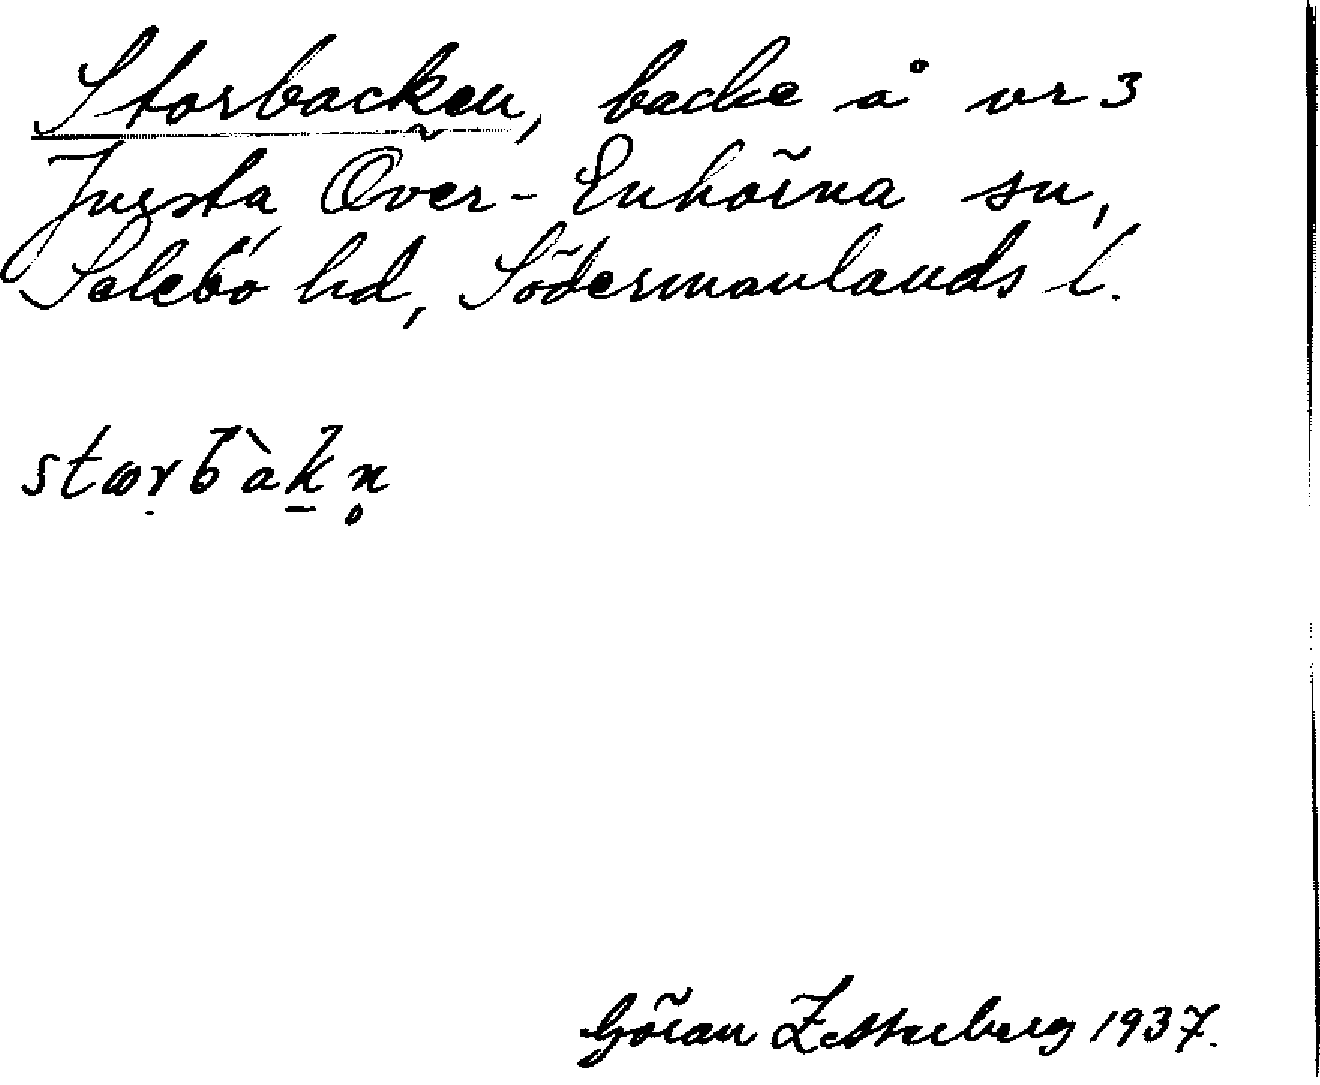 Storbacken, backe å nr 3
Juesta Över-Enhörna sn,
Selebo hd, Södermanlands l.
Göran Zetterberg 1937.